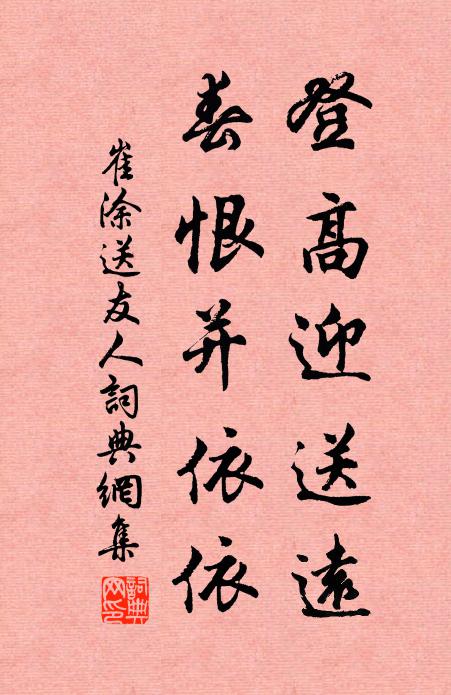 登高迎送遠
春恨并依依
崔涂送友人詞典網集
詞典網印